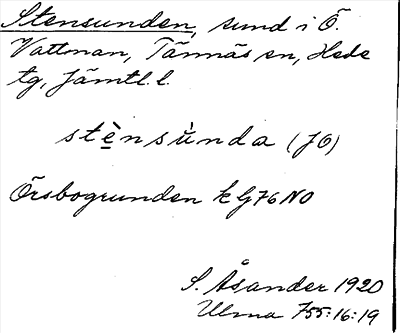 Stensunden, sund i Ö.
Vattnan, Tännäs sn, Hede
tg, Jämtl. l.
stè̱nsùnda (JO)
Örsbogrunden k G76 NO
S. Åsander 1920
Ulma 755:16:19